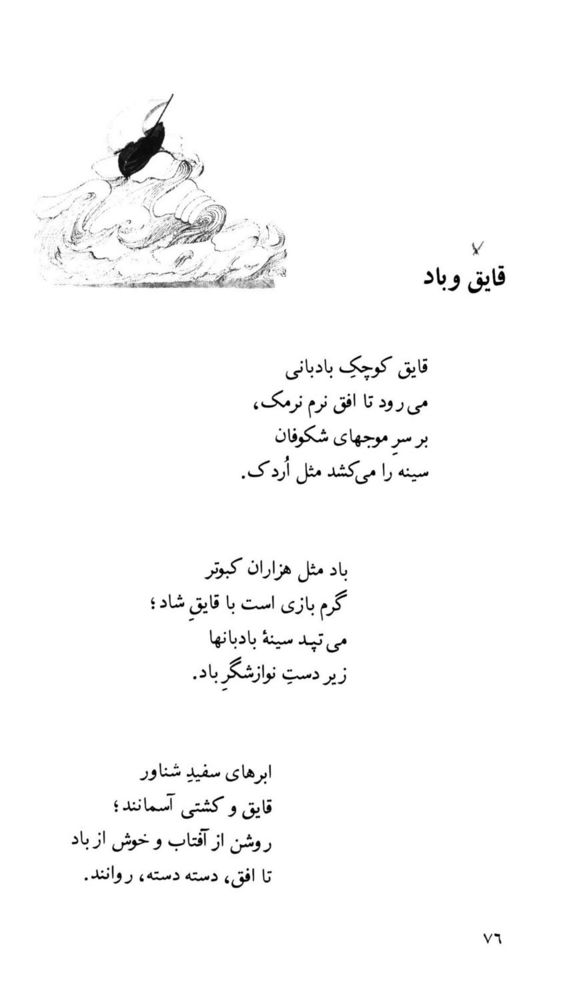 قایق و باد
قایق کوچکِ بادبانی
می‌رود تا افق نرم نرمک،
بر سرِ موجهای شکوفان
سینه را می‌کشد مثل اُردک.
باد مثل هزاران کبوتر
گرم بازی است با قایقِ شاد؛
می‌تپد سینهٔ بادبانها
زیر دستِ نوازشگرِ باد.
ابرهای سفیدِ شناور
قایق و کشتی آسمانند؛
روشن از آفتاب و خوش از باد
تا افق، دسته دسته، روانند.
۷۶